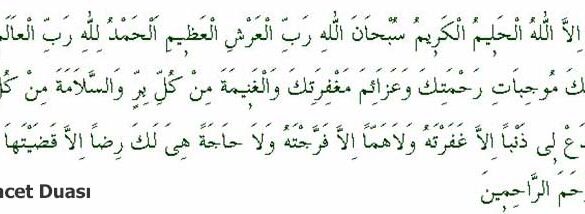 الاَّ اللهُ الْحَلِيمُ الْكَرِيمُ سُبْحَانَ اللهِ رَبِّ الْعَرْشِ الْعَظِيمِ اَلْحَمْدُ لِلّٰهِ رَبِّ الْعَالَمِ
لُكَ مُوجِبَاتِ رَحْمَتِكَ وَعَزَائِمَ مَغْفِرَتِكَ وَالْغَنِيمَةَ مِنْ كُلِّ بِرٍّ وَالسَّلاَمَةَ مِنْ كُلِّ
دَعْ لِى ذَنْباً اِلاَّ غَفَرْتَهُ وَلاَهَمًّا اِلاَّ فَرَّجْتَهُ وَلاَ حَاجَةً هِىَ لَكَ رِضاً اِلاَّ قَضَيْتَهَا
رْحَمَ الرَّاحِمِينَ
cet Duası